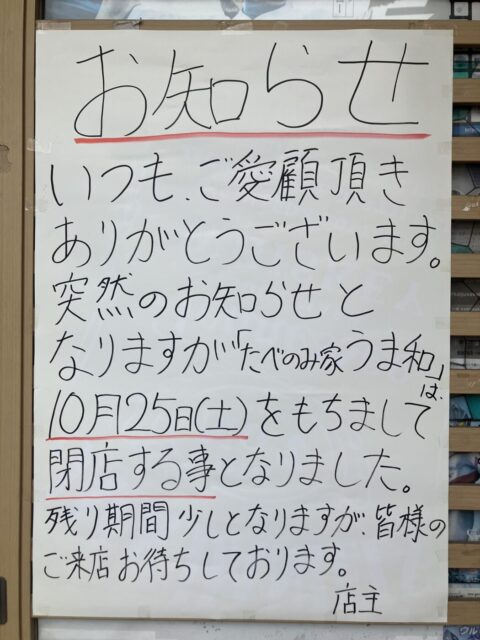 お知らせ
いつも、ご愛顧頂き
ありがとうございます。
突然のお知らせと
なりますが「たべのみ家うま和」は、
10月25日(土)をもちまして
閉店する事となりました。
残り期間少しとなりますが、皆様の
ご来店お待ちしております。
店主